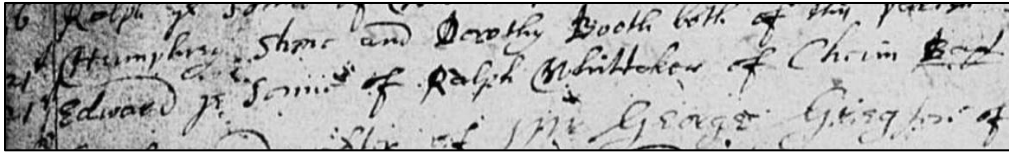 6 Ralph ye Sonne of
Humphrey Shore and Dorothy Booth both of this parish
21 Edward ye Sonne of Ralph Whitteker of Cheim Bapt
21 of Mr George Gregson of